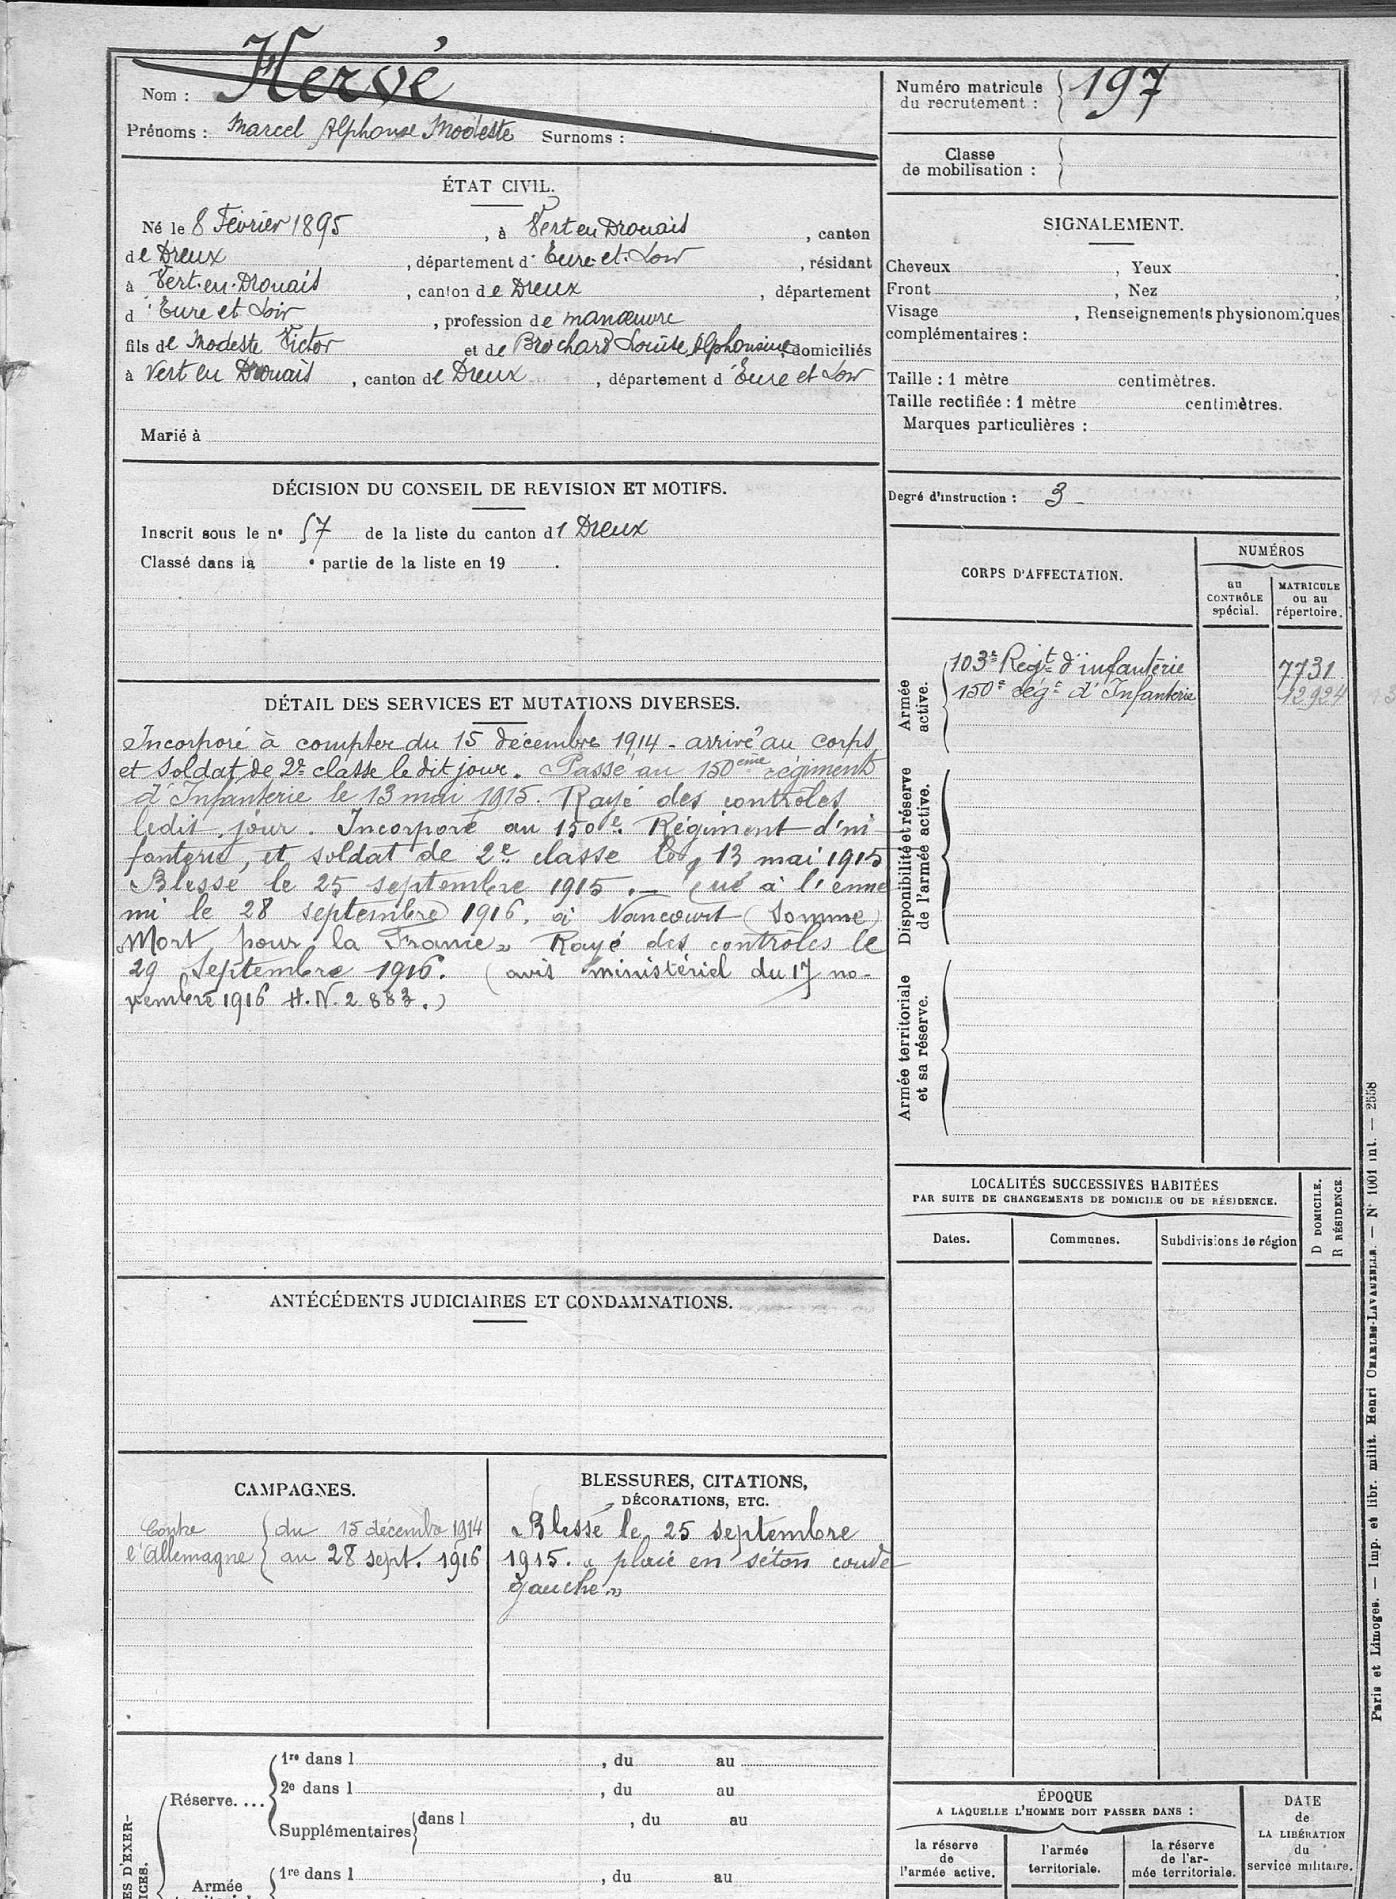 Nom : Hervé
Prénoms : Marcel Alphonse Modeste Surnoms :
Numéro matricule
du recrutement : 197
Classe
de mobilisation :
ÉTAT CIVIL.
Né le 8 Février 1895, à Vert en Drouais, canton
de Dreux, département d'Eure-et-Loir, résidant
à Vert-en-Drouais, canton de Dreux, département
d'Eure et Loir, profession de manœuvre
fils de Modeste Victor et de Brochard Louise Alphonsine, domiciliés
à Vert en Drouais, canton de Dreux, département d'Eure et Loir
Marié à
SIGNALEMENT.
Cheveux, Yeux
Front, Nez
Visage, Renseignements physionomiques
complémentaires :
Taille : 1 mètre centimètres.
Taille rectifiée : 1 mètre centimètres.
Marques particulières :
Degré d'instruction : 3
DÉCISION DU CONSEIL DE REVISION ET MOTIFS.
Inscrit sous le n° 57 de la liste du canton d Dreux
Classé dans la e partie de la liste en 19 .
CORPS D'AFFECTATION.
NUMÉROS
au
CONTRÔLE
spécial.
MATRICULE
ou au
répertoire.
Armée
active.
103e Regt d'infanterie 7731
150e régt d'Infanterie 12924
Disponibilité et réserve
de l'armée active.
Armée territoriale
et sa réserve.
DÉTAIL DES SERVICES ET MUTATIONS DIVERSES.
Incorporé à compter du 15 décembre 1914 - arrivé au corps
et soldat de 2e classe le dit jour. Passé au 150ème régiment
d'Infanterie le 13 mai 1915. Rayé des contrôles
ledit jour. Incorporé au 150e Régiment d'in
fanterie, et soldat de 2e classe le 13 mai 1915
Blessé le 25 septembre 1915. — Tué à l'enne
mi le 28 septembre 1916, à Rancourt (Somme)
Mort pour la France » Rayé des contrôles le
29 Septembre 1916. (avis ministériel du 17 no-
vembre 1916 H.N. 2883.)
LOCALITÉS SUCCESSIVES HABITÉES
PAR SUITE DE CHANGEMENTS DE DOMICILE OU DE RÉSIDENCE.
Dates. Communes. Subdivisions de région
D DOMICILE.
R RÉSIDENCE
ANTÉCÉDENTS JUDICIAIRES ET CONDAMNATIONS.
CAMPAGNES.
Contre
l'Allemagne
du 15 décembre 1914
au 28 sept. 1916
BLESSURES, CITATIONS,
DÉCORATIONS, ETC.
Blessé le 25 septembre
1915. « plaie en séton coude
gauche »
Réserve....
1re dans l, du au
2e dans l, du au
Supplémentaires dans l, du au
Armée
1re dans l, du au
ÉPOQUE
A LAQUELLE L'HOMME DOIT PASSER DANS :
la réserve
de
l'armée active.
l'armée
territoriale.
la réserve
de l'ar-
mée territoriale.
DATE
de
LA LIBÉRATION
du
service militaire.
Paris et Limoges. — Imp. et libr. milit. Henri CHARLES-LAVAUZELLE. — N° 1001 int. — 2558